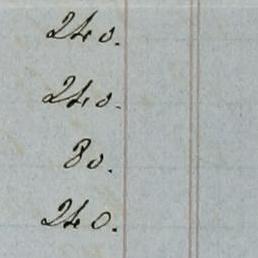 240.
240.
80.
240.